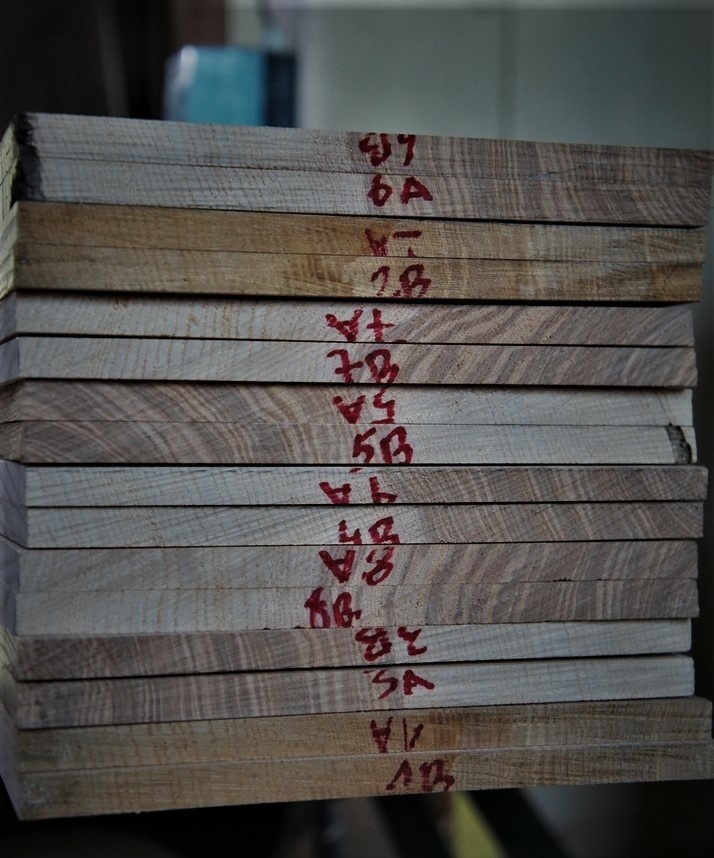 6B
6A
2B
7A
7B
5A
5B
4A
4B
8A
8B
3B
3A
1A
1B